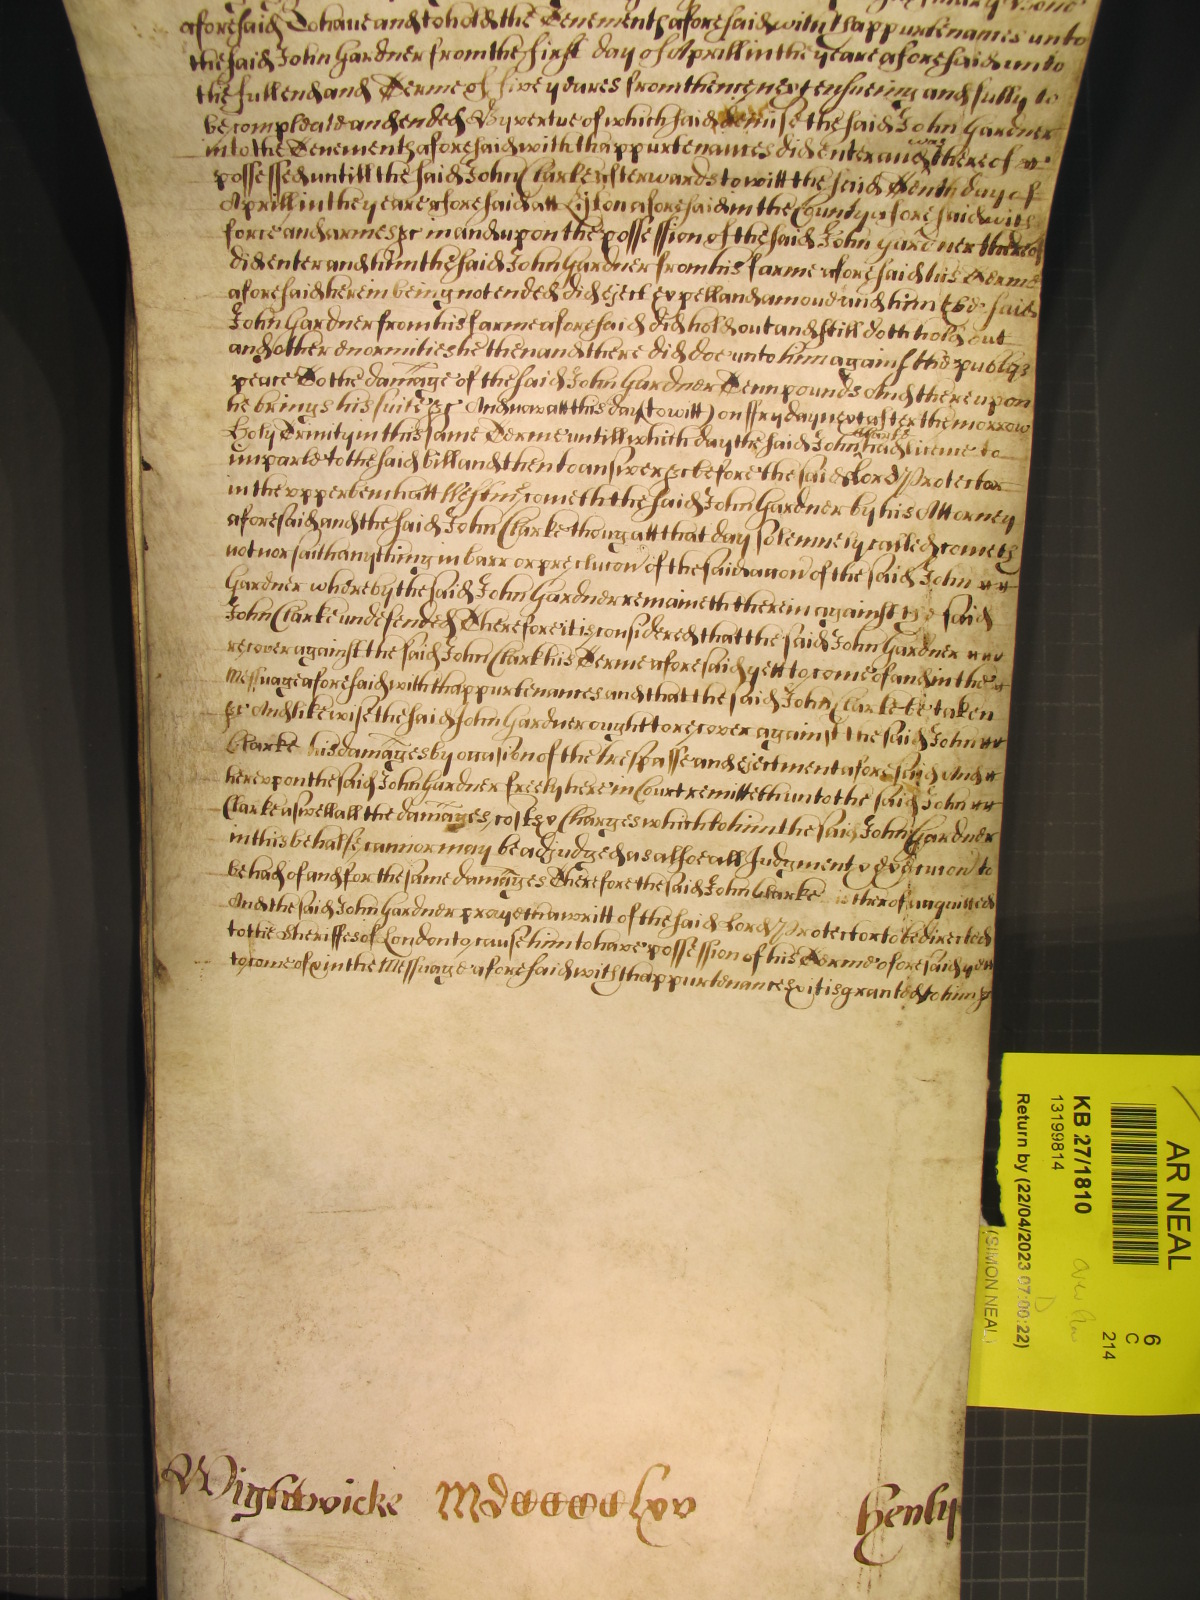 aforesaid To have and to hold the Tenement aforesaid with thappurtenances unto
the said John Gardner from the first day of Aprill in the yeare aforesaid unto
the full end and Terme of five yeares from thence next ensueing and fully to
be compleate and ended By vertue of which said demise the said John Gardner
into the Tenement aforesaid with thappurtenances did enter and was thereof
possessed untill the said John Clarke afterwards to witt the said Tenth day of
Aprill in the yeare aforesaid att Liston aforesaid in the County aforesaid with
force and armes &c in and upon the possession of the said John Gardner thereof
did enter and him the said John Gardner from his farme aforesaid his Terme
aforesaid therein being not ended did eject expell and amove and him the said
John Gardner from his farme aforesaid did hold out and still doth hold out
and other enormities he then and there did doe unto him against the publiq
peace To the damage of the said John Gardner Tenn pounds And thereupon
he brings his suite &c And now att this day (to witt) on fryday next after the morrow
Holy Trinity in this same Terme untill which day the said John Clarke had licence to
imparle to the said bill and then to answere &c before the said Lord Protector
in the upper bench att Westmr cometh the said John Gardner by his Attorney
aforesaid and the said John Clarke though att that day solemnely called cometh
not nor saith anything in barr or preclucon of the said accon of the said John
Gardner whereby the said John Gardner remaineth therein against the said
John Clarke undefended Therefore it is considered that the said John Gardner
recover against the said John Clark his Terme aforesaid yett to come of and in the
Messuage aforesaid with thappurtenances and that the said John Clarke be taken
&c And likewise the said John Gardner ought to recover against the said John
Clarke his damages by occasion of the trespasse and ejectment aforesaid And
hereupon the said John Gardner freely here in Court remitteth unto the said John
Clarke aswell all the damages, costs & Charges which to him the said John Gardner
in this behalfe cann or may be adjudged as alsoe all Judgment & execucon to
be had of and for the same damages Therefore the said John Clarke is therof acquitted
And the said John Gardner prayeth a writt of the said Lord Protector to be directed
to the Sheriffes of London to cause him to have possession of his Terme aforesaid yett
to come of & in the Messuage aforesaid with thappurtenances & it is granted to him &c
Wightwicke MdCCCClxv Henly
AR NEAL
6
C
214
KB 27/1810
13199814
Return by (22/04/2023 07:00:22)
(SIMON NEAL)